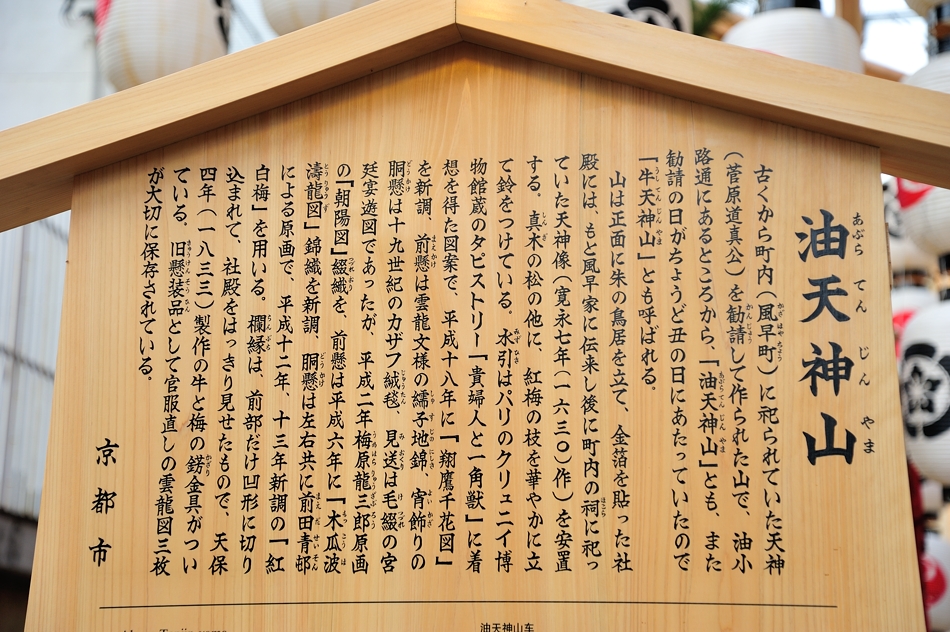 油天神山
古くから町内（風早町）に祀られていた天神
（菅原道真公）を勧請して作られた山で、油小
路通にあるところから、「油天神山」とも、また
勧請の日がちょうど丑の日にあたっていたので
「牛天神山」とも呼ばれる。
山は正面に朱の鳥居を立て、金箔を貼った社
殿には、もと風早家に伝来し後に町内の祠に祀っ
ていた天神像（寛永七年（一六三〇）作）を安置
する。真木の松の他に、紅梅の枝を華やかに立
て鈴をつけている。水引はパリのクリュニイ博
物館蔵のタピストリー「貴婦人と一角獣」に着
想を得た図案で、平成十八年に「翔鷹千花図」
を新調、前懸は雲龍文様の繻子地錦、宵飾りの
胴懸は十九世紀のカザフ絨毯、見送は毛綴の宮
廷宴遊図であったが、平成二年梅原龍三郎原画
の「朝陽図」綴織を、前懸は平成六年に「木瓜波
濤龍図」錦織を新調、胴懸は左右共に前田青邨
による原画で、平成十二年、十三年新調の「紅
白梅」を用いる。欄縁は、前部だけ凹形に切り
込まれて、社殿をはっきり見せたもので、天保
四年（一八三三）製作の牛と梅の錺金具がつい
ている。旧懸装品として官服直しの雲龍図三枚
が大切に保存されている。
京都市
油天神山车